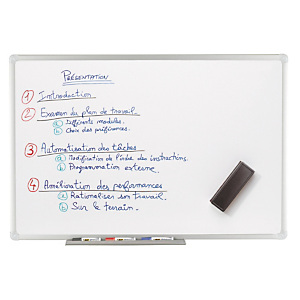 PRÉSENTATION
1 Introduction
2 Examen du plan de travail
a Différents modules.
b Choix des préférences.
3 Automatisation des tâches
a Modification de l'ordre des instructions.
b Programmation externe.
4 Amélioration des performances
a Rationaliser son travail.
b Sur le terrain.